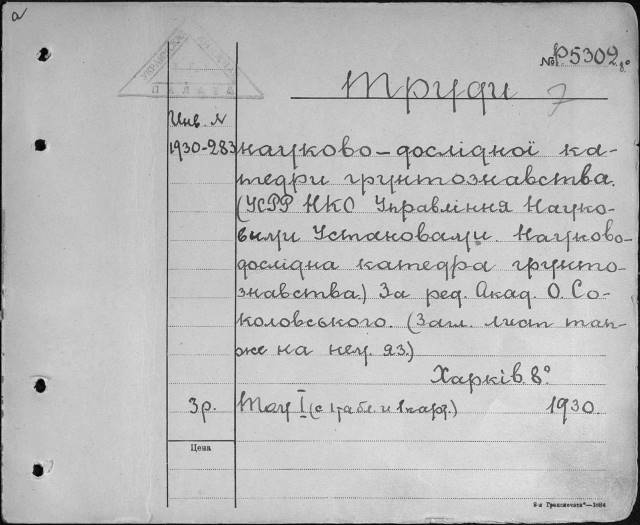 № Р5302 8°
УКРАЇНСЬКА КНИЖКОВА
ПАЛАТА
Труди
7
Инв. №
1930-283 науково-дослідної ка-
тедри ґрунтознавства.
(УСРР НКО Управління Науко-
вими Установами. Науково-
дослідна катедра ґрунто-
знавства.) За ред. Акад. О. Со-
коловського. (Загл. лист так-
же на нем. яз.)
Харків. 8°
3р. Том I (с 1 табл. и 1 карт.) 1930.
Цена